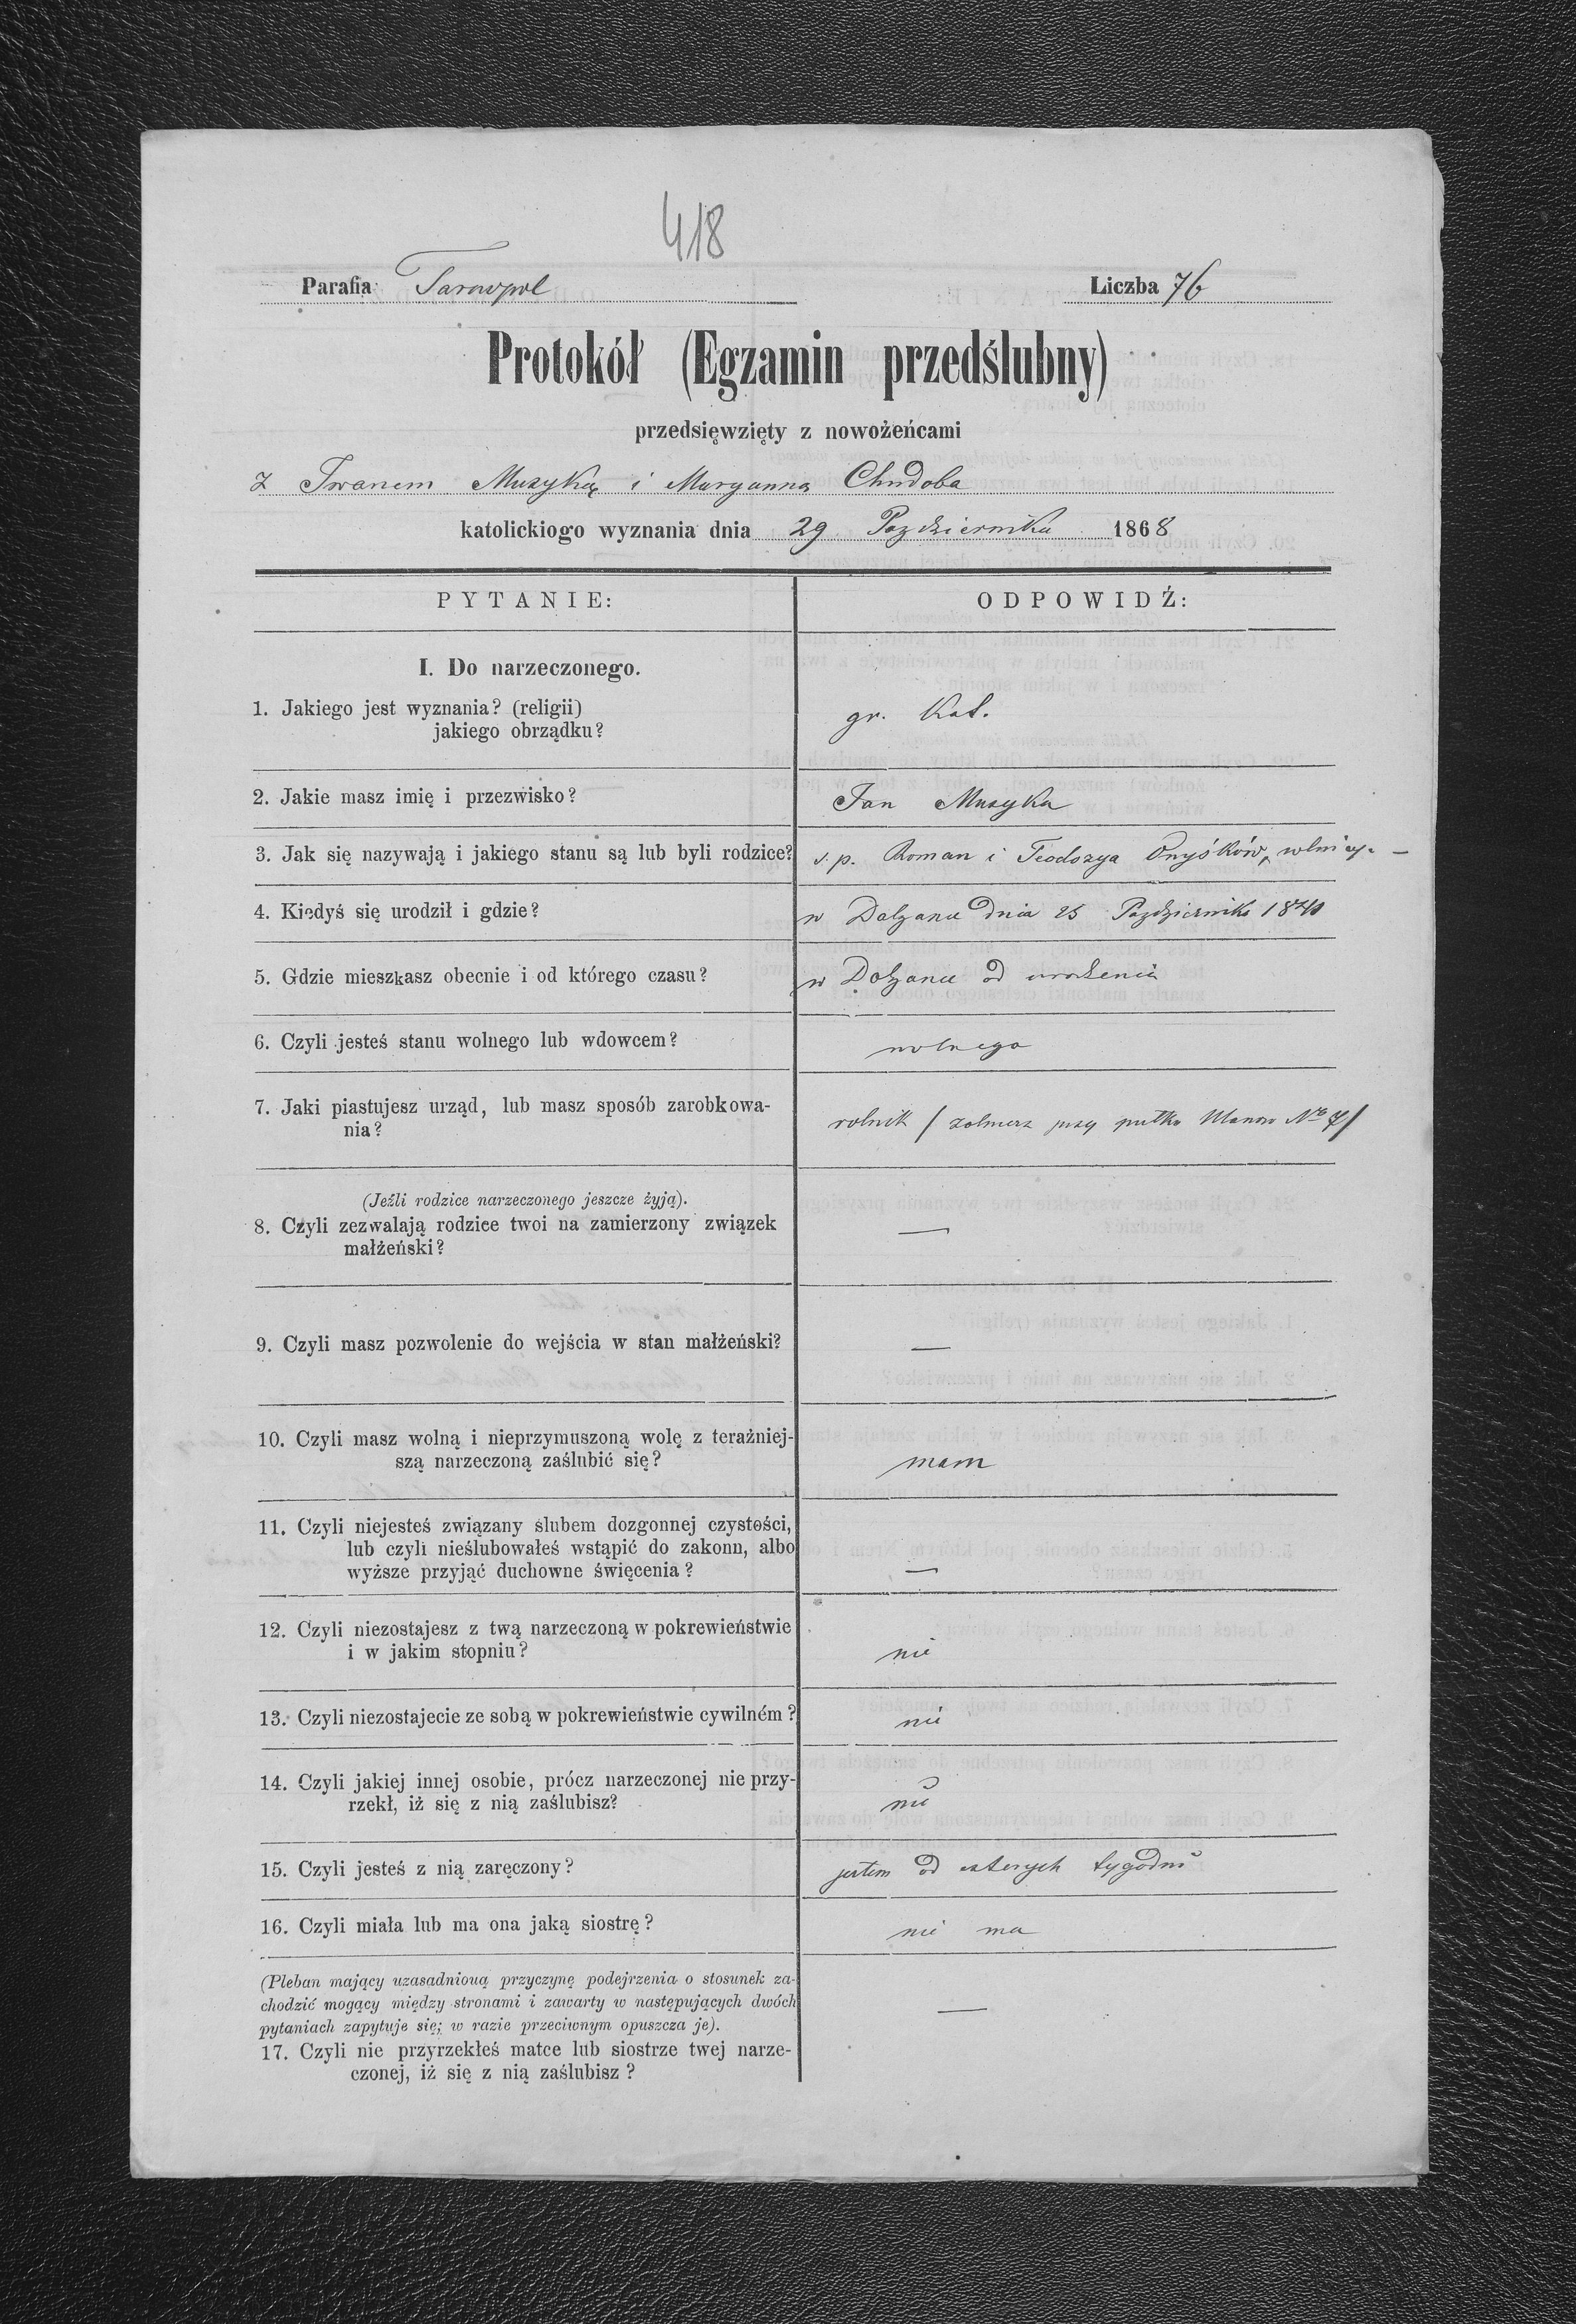 418
Parafia Tarnopol Liczba 76
Protokół (Egzamin przedślubny)
przedsięwzięty z nowożeńcami
z Iwanem Muzyką i Maryanna Chudoba
katolickiogo wyznania dnia 29 Pazdziernika 1868
PYTANIE: ODPOWIDŹ:
I. Do narzeczonego.
1. Jakiego jest wyznania? (religii)
jakiego obrządku? gr. Kat.
2. Jakie masz imię i przezwisko? Jan Muzyka
3. Jak się nazywają i jakiego stanu są lub byli rodzice? s. p. Roman i Teodozya Onyśków, rolnicy. —
4. Kiedyś się urodził i gdzie? w Dolzance dnia 25 Pazdziernika
5. Gdzie mieszkasz obecnie i od którego czasu? w Dolzance od urodzenia
6. Czyli jesteś stanu wolnego lub wdowcem? wolnego
7. Jaki piastujesz urząd, lub masz sposób zarobkowa-
nia? rolnik / zolnierz przy pułku Ułanow No 7/
(Jeźli rodzice narzeczonego jeszcze żyją).
8. Czyli zezwalają rodzice twoi na zamierzony związek
małżeński? —
9. Czyli masz pozwolenie do wejścia w stan małżeński? —
10. Czyli masz wolną i nieprzymuszoną wolę z teraźniej-
szą narzeczoną zaślubić się? mam
11. Czyli niejesteś związany ślubem dozgonnej czystości,
lub czyli nieślubowałeś wstąpić do zakonn, albo
wyższe przyjąć duchowne święcenia? —
12. Czyli niezostajesz z twą narzeczoną w pokrewieństwie
i w jakim stopniu? nie
13. Czyli niezostajecie ze sobą w pokrewieństwie cywilném? nie
14. Czyli jakiej innej osobie, prócz narzeczonej nie przy-
rzekł, iż się z nią zaślubisz? nie
15. Czyli jesteś z nią zaręczony? jestem od czterych tygodni
16. Czyli miała lub ma ona jaką siostrę? nie ma
(Pleban mający uzasadnioną przyczynę podejrzenia o stosunek za-
chodzić mogący między stronami i zawarty w następujących dwóch
pytaniach zapytuje się; w razie przeciwnym opuszcza je). —
17. Czyli nie przyrzekłeś matce lub siostrze twej narze-
czonej, iż się z nią zaślubisz?